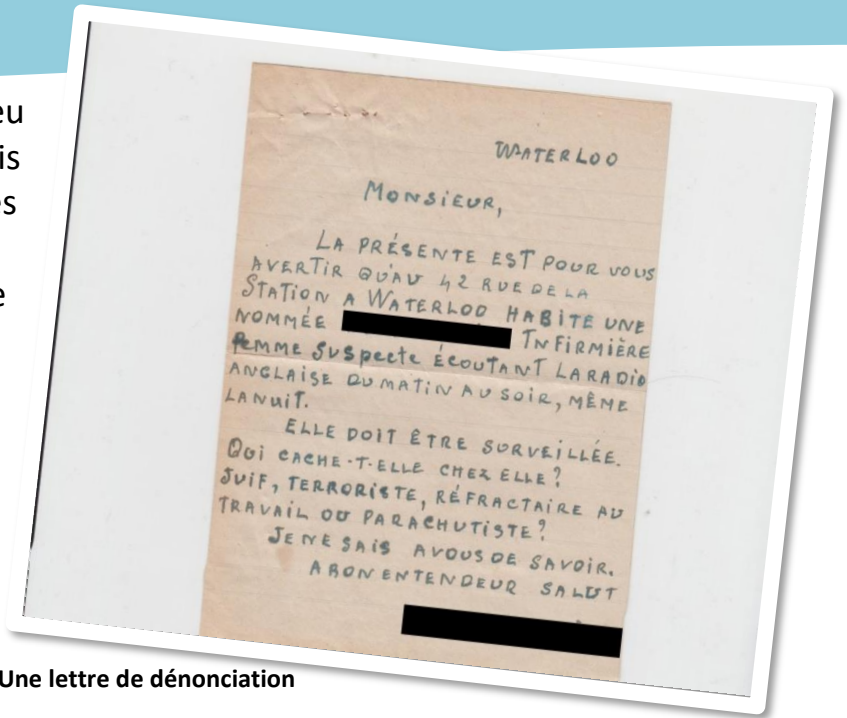 eu
is
es
e
WATERLOO
MONSIEUR,
LA PRÉSENTE EST POUR VOUS
AVERTIR QU'AU 42 RUE DE LA
STATION A WATERLOO HABITE UNE
NOMMÉE INFIRMIÈRE
FEMME SUSPECTE ÉCOUTANT LA RADIO
ANGLAISE DU MATIN AU SOIR, MÊME
LA NUIT.
ELLE DOIT ÊTRE SURVEILLÉE.
QUI CACHE-T-ELLE CHEZ ELLE?
JUIF, TERRORISTE, RÉFRACTAIRE AU
TRAVAIL OU PARACHUTISTE?
JE NE SAIS A VOUS DE SAVOIR.
A BON ENTENDEUR SALUT
Une lettre de dénonciation